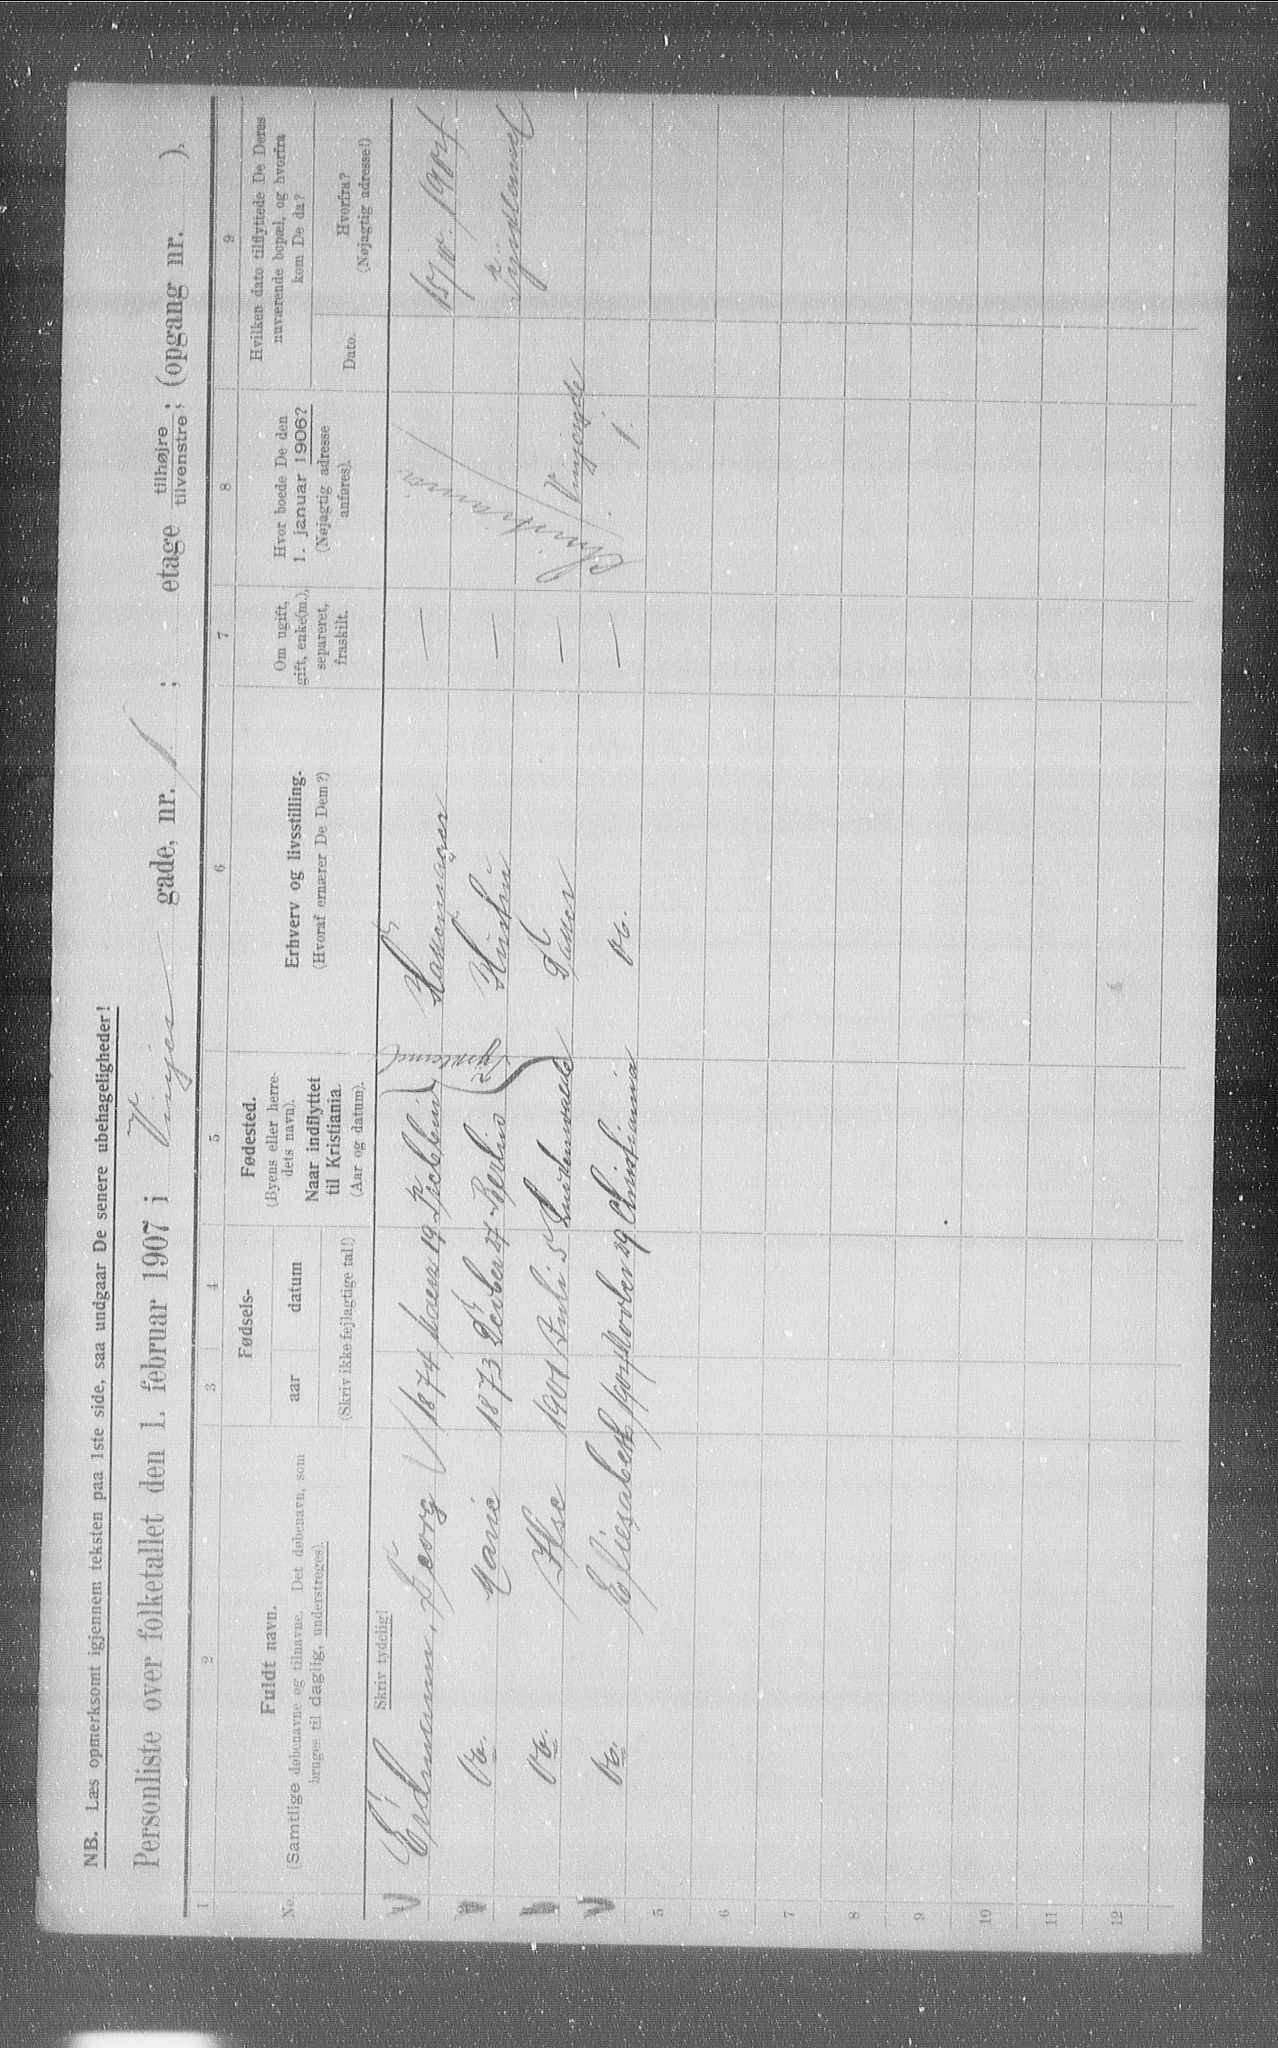 NB. Læs opmerksomt igjennem teksten paa 1ste side, saa undgaar De senere ubehageligheder!
Personliste over folketallet den 1. februar 1907 i Vinjes gade, nr. 1 ; etage tilhøjre tilvenstre; (opgang nr. ).
1 2 3 4 5 6 7 8 9
No.
Fuldt navn.
(Samtlige døbenavne og tilnavne. Det døbenavn, som
bruges til daglig, understreges).
Fødsels-
aar datum
(Skriv ikke fejlagtige tal!)
Fødested.
(Byens eller herre-
dets navn).
Naar indflyttet
til Kristiania.
(Aar og datum).
Erhverv og livsstilling.
(Hvoraf ernærer De Dem?)
Om ugift,
gift, enke(m.),
separeret,
fraskilt.
Hvor boede De den
1. januar 1906?
(Nøjagtig adresse
anføres).
Hvilken dato tilflyttede De Deres
nuværende bopæl, og hvorfra
kom De da?
Dato.
Hvorfra?
(Nøjagtig adresse!)
Skriv tydelig!
Erdmann, Georg 1874 19 —
Do. Marie 1873 27 Berlin —
Do. Ilse 1901 Juli 5 —
Do. 29 Christiania do. —
Christiania
Vinjesgde
1.
Tyskland
5
6
7
8
9
10
11
12